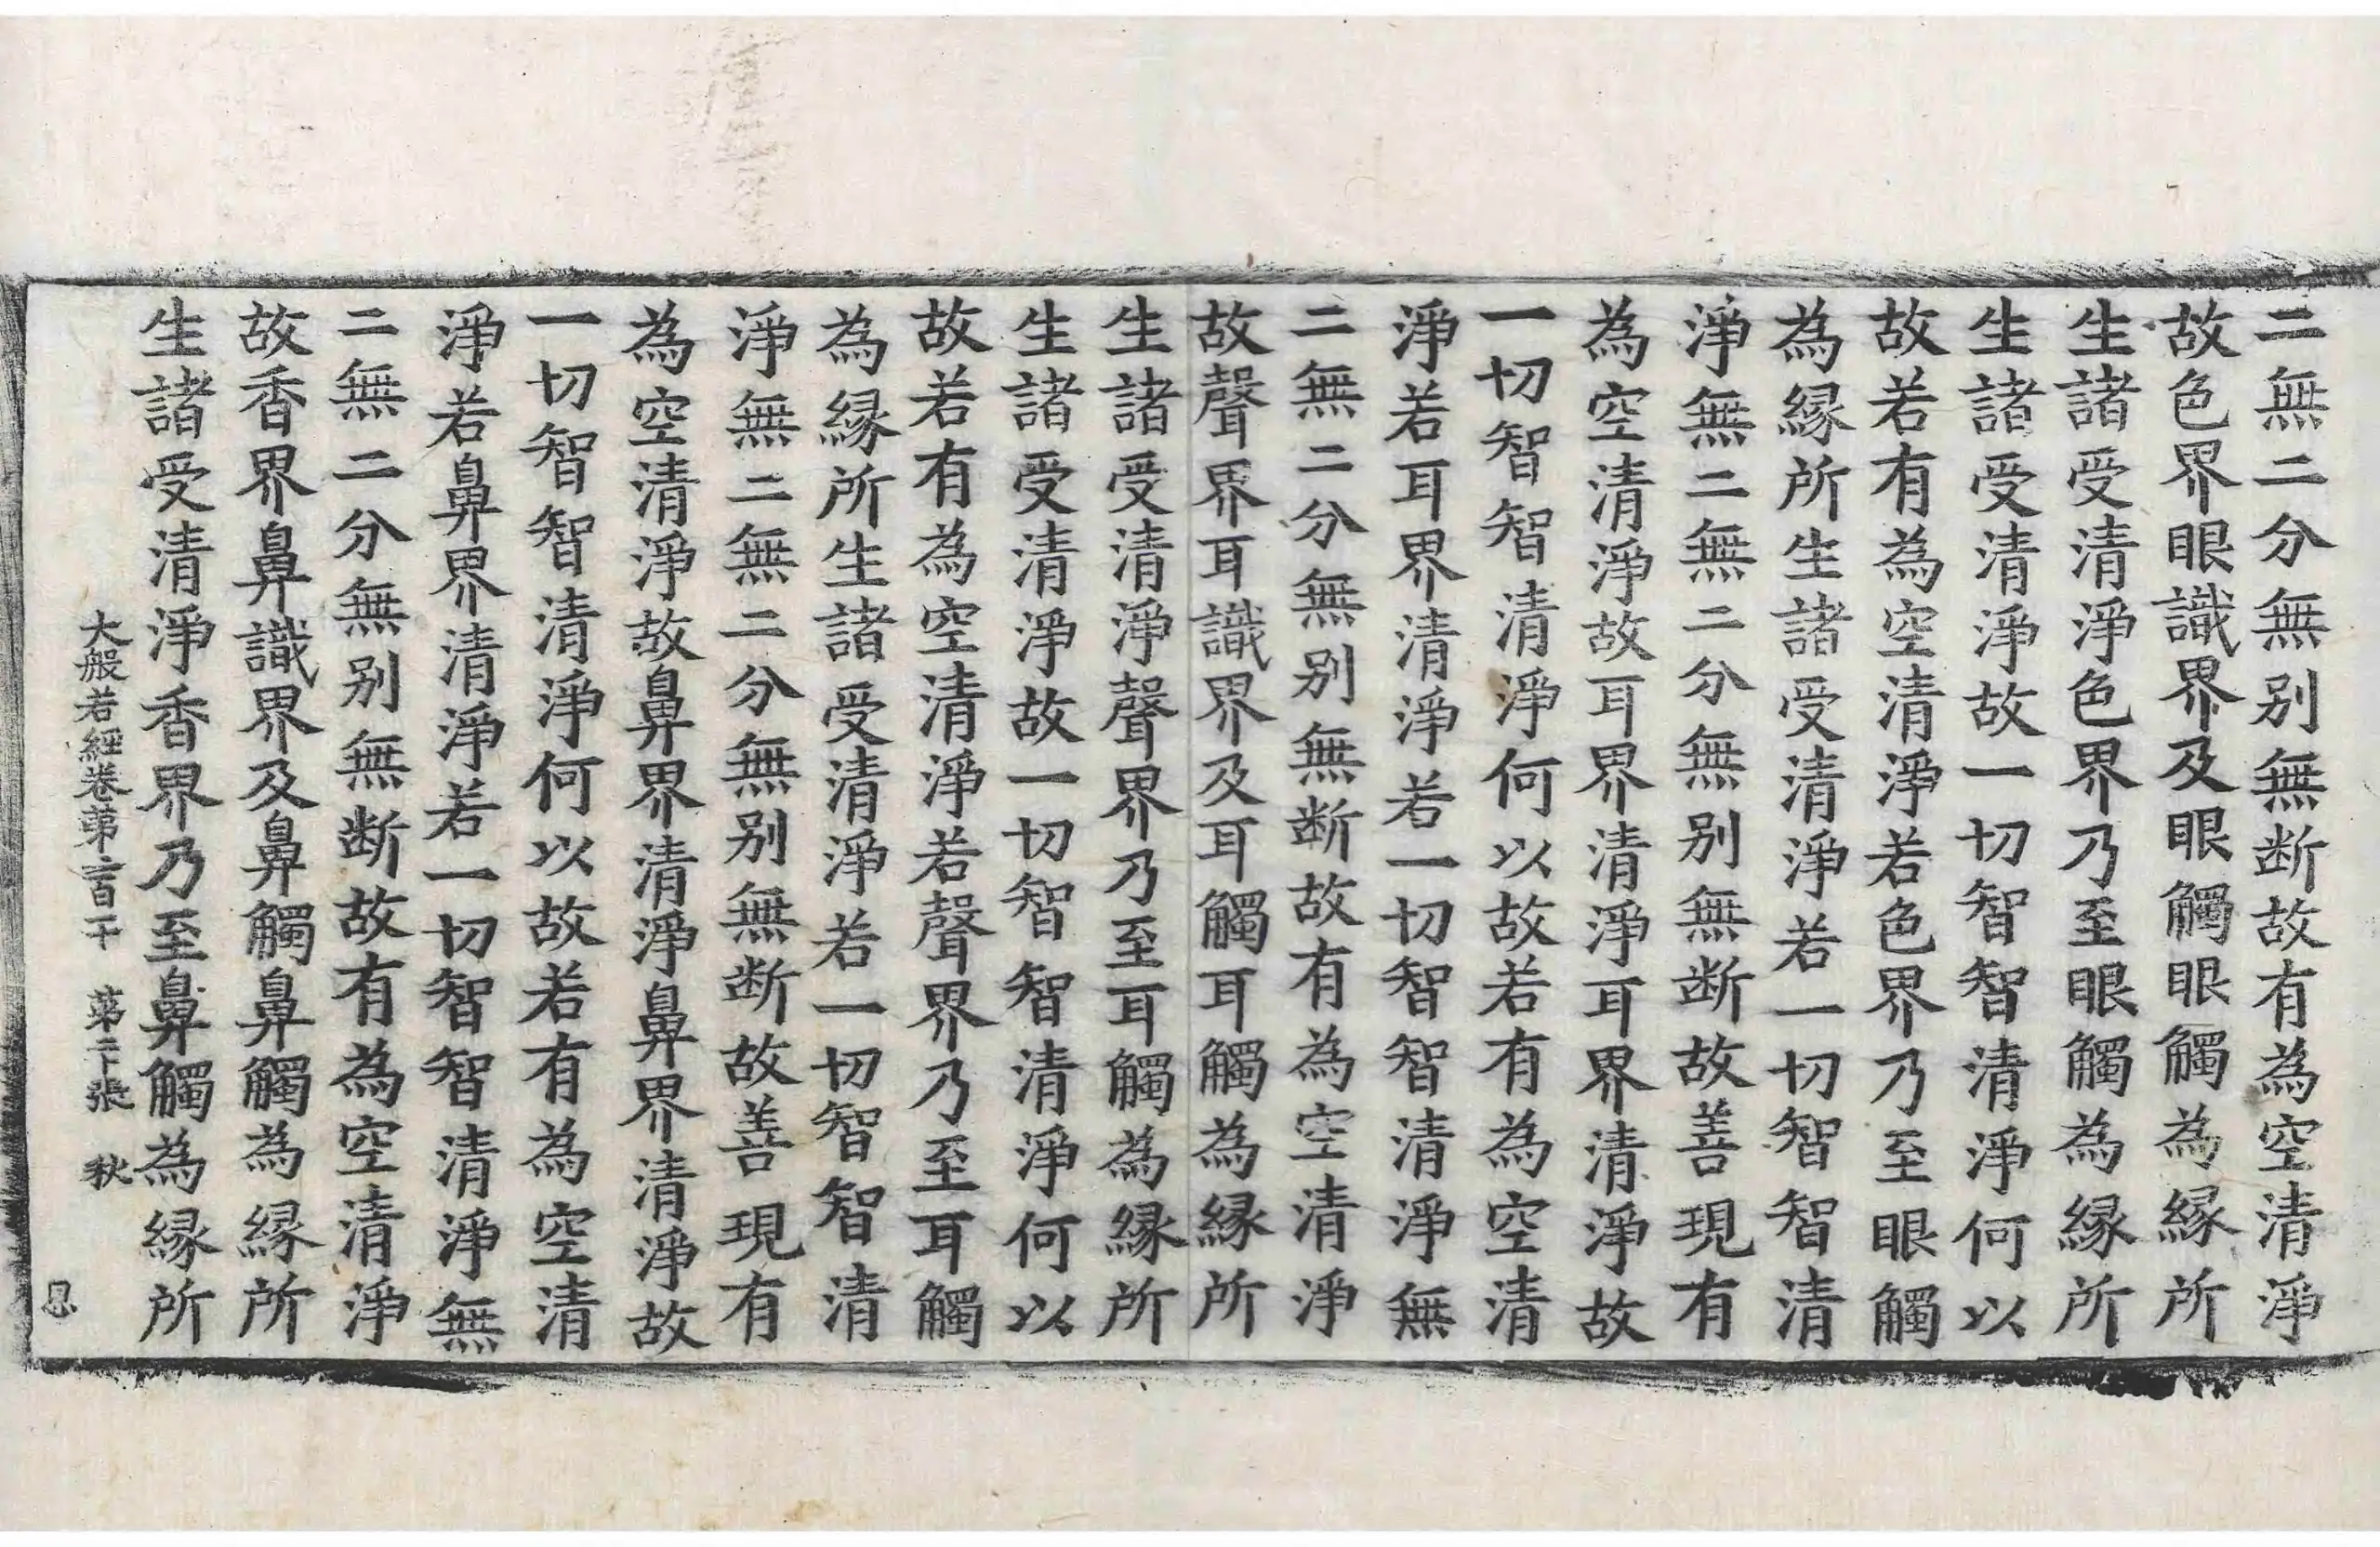 二無二分無別無断故有為空清淨
故色界眼識界及眼觸眼觸為縁所
生諸受清淨色界乃至眼觸為縁所
生諸受清淨故一切智智清淨何以
故若有為空清淨若色界乃至眼觸
為縁所生諸受清淨若一切智智清
淨無二無二分無別無断故善現有
為空清淨故耳界清淨耳界清淨故
一切智智清淨何以故若有為空清
淨若耳界清淨若一切智智清淨無
二無二分無別無断故有為空清淨
故聲界耳識界及耳觸耳觸為縁所
生諸受清淨聲界乃至耳觸為縁所
生諸受清淨故一切智智清淨何以
故若有為空清淨若聲界乃至耳觸
為縁所生諸受清淨若一切智智清
淨無二無二分無別無断故善現有
為空清淨故鼻界清淨鼻界清淨故
一切智智清淨何以故若有為空清
淨若鼻界清淨若一切智智清淨無
二無二分無別無断故有為空清淨
故香界鼻識界及鼻觸鼻觸為縁所
生諸受清淨香界乃至鼻觸為縁所
大般若經卷第二百一十 第二十張 秋